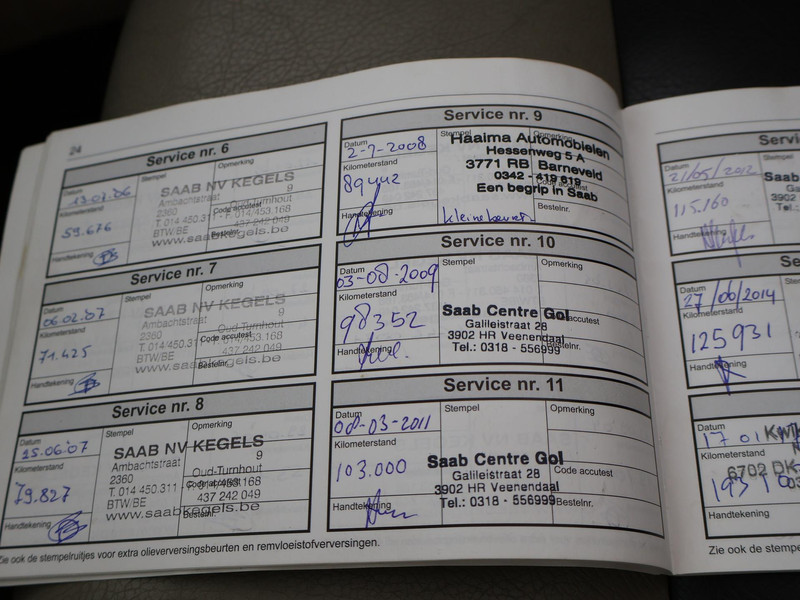 24
Service nr. 6
Datum
Stempel
Opmerking
13.07.06
Kilometerstand
59.676
Handtekening
SAAB NV KEGELS
Ambachtstraat 9
2360 Oud-Turnhout
T. 014 450.311 - F. 014/453.168
BTW/BE 437 242 049
www.saabkegels.be
Code accutest
Bestelnr.
Service nr. 7
Datum
Stempel
Opmerking
06.02.07
Kilometerstand
71.425
Handtekening
SAAB NV KEGELS
Ambachtstraat 9
2360 Oud-Turnhout
T. 014/450.311 - F. 014/453.168
BTW/BE 437 242 049
www.saabkegels.be
Code accutest
Bestelnr.
Service nr. 8
Datum
Stempel
Opmerking
15.06.07
Kilometerstand
79.827
Handtekening
SAAB NV KEGELS
Ambachtstraat 9
2360 Oud-Turnhout
T. 014 450.311 - F. 014/453.168
BTW/BE 437 242 049
www.saabkegels.be
Code accutest
Bestelnr.
Service nr. 9
Datum
Stempel
Opmerking
2-7-2008
Kilometerstand
89442
Handtekening
Haaima Automobielen
Hessenweg 5 A
3771 RB Barneveld
0342 - 419 619
Een begrip in Saab
Code accutest
Bestelnr.
kleine beurt
Service nr. 10
Datum
Stempel
Opmerking
03-08-2009
Kilometerstand
98352
Handtekening
Saab Centre Gol
Galileistraat 28
3902 HR Veenendaal
Tel.: 0318 - 556999
Code accutest
Bestelnr.
Service nr. 11
Datum
Stempel
Opmerking
08-03-2011
Kilometerstand
103.000
Handtekening
Saab Centre Gol
Galileistraat 28
3902 HR Veenendaal
Tel.: 0318 - 556999
Code accutest
Bestelnr.
Zie ook de stempelruitjes voor extra olieverversingsbeurten en remvloeistofverversingen.
Servi
Datum
21/05/2012
Kilometerstand
115.160
Handtekening
Saab
Galilei
3902
Tel.:
Se
Datum
27/06/2014
Kilometerstand
125931
Handtekening
Datum
17 01
Kilometerstand
6702 DK
Handtekening
Zie ook de stempe